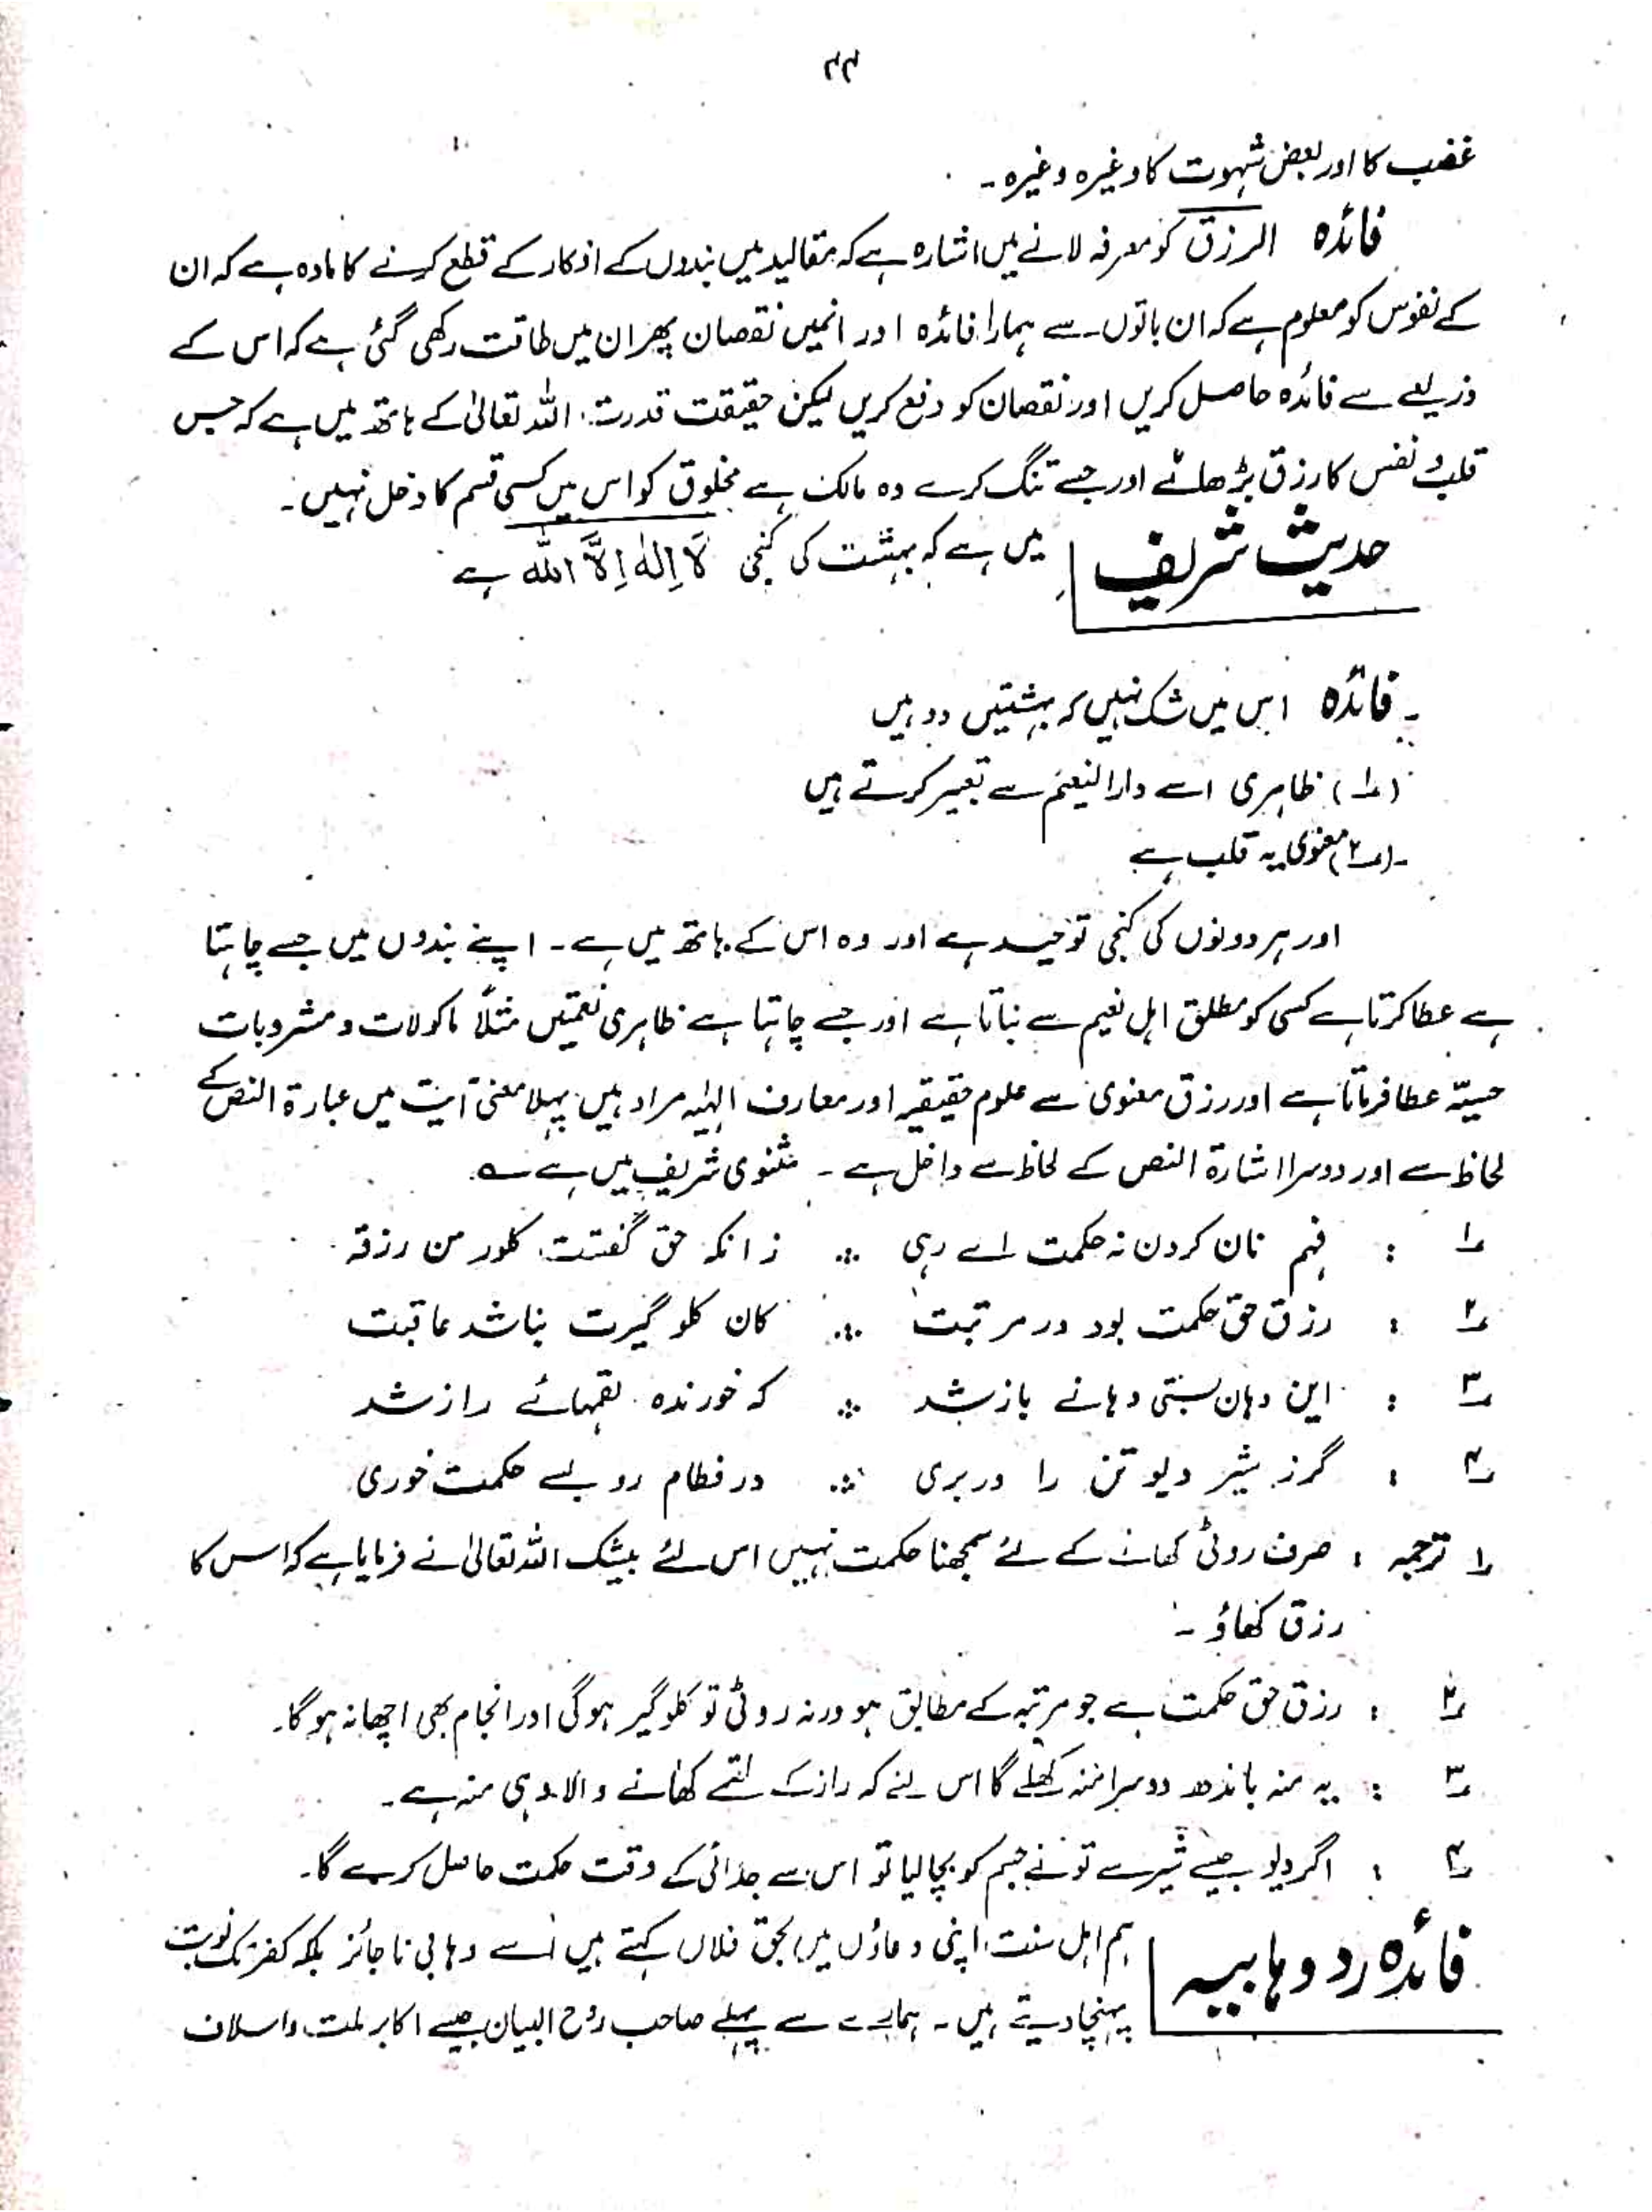 ۲۴
غضب کا اور بعض شہوت کا وغیرہ وغیرہ۔
فائدہ الرزق کو معرفہ لانے میں اشارہ ہے کہ مقالید میں بندوں کے اذکار کے قطع کرنے کا مادہ ہے کہ ان
کے نفوس کو معلوم ہے کہ ان باتوں سے ہمارا فائدہ اور انہیں نقصان پھر ان میں طاقت رکھی گئی ہے کہ اس کے
ذریعے سے فائدہ حاصل کریں اور نقصان کو دفع کریں لیکن حقیقت قدرت اللہ تعالیٰ کے ہاتھ میں ہے کہ جس
قلب و نفس کا رزق بڑھائے اور جسے تنگ کرے وہ مالک ہے مخلوق کو اس میں کسی قسم کا دخل نہیں۔
حدیث شریف میں ہے کہ بہشت کی کنجی لَا اِلٰہَ اِلَّا اللّٰہ ہے
فائدہ اس میں شک نہیں کہ بہشتیں دو ہیں
(۱) ظاہری اسے دار النعیم سے تعبیر کرتے ہیں
(۲) معنوی یہ قلب ہے
اور ہر دونوں کی کنجی توحید ہے اور وہ اس کے ہاتھ میں ہے۔ اپنے بندوں میں جسے چاہتا
ہے عطا کرتا ہے کسی کو مطلق اہل نعیم سے بناتا ہے اور جسے چاہتا ہے ظاہری نعمتیں مثلاً ماکولات و مشروبات
حسیّہ عطا فرماتا ہے اور رزق معنوی سے علوم حقیقیہ اور معارف الہٰیہ مراد ہیں پہلا معنی آیت میں عبارۃ النص کے
لحاظ سے اور دوسرا اشارۃ النص کے لحاظ سے داخل ہے ۔ مثنوی شریف میں ہے ؎
۱ : فہم نان کردن نہ حکمت اے رہی ∴ زانکہ حق گفتت کلور من رزقہ
۲ : رزق حق حکمت بود در مرتبت ∴ کان کلو گیرت بناشد عاقبت
۳ : این دہان بستی دہانے باز شد ∴ کہ خورندہ لقمہائے راز شد
۴ : گر ز شیر دیو تن را دربری ∴ در فطام رو بسے حکمت خوری
۱ ترجمہ : صرف روٹی کھانے کے لئے سمجھنا حکمت نہیں اس لئے بیشک اللہ تعالیٰ نے فرمایا ہے کہ اس کا
رزق کھاؤ ۔
۲ : رزق حق حکمت ہے جو مرتبہ کے مطابق ہو ورنہ روٹی تو کلو گیر ہوگی اور انجام بھی اچھا نہ ہوگا۔
۳ : یہ منہ باندھ دوسرا منہ کھلے گا اس لئے کہ راز کے لقمے کھانے والا وہی منہ ہے۔
۴ : اگر دیو جیسے شیر سے تو نے جسم کو بچا لیا تو اس سے جدائی کے وقت حکمت حاصل کرے گا۔
فائدہ رد وہابیہ ہم اہل سنت اپنی دعاؤں میں بحق فلاں کہتے ہیں اسے وہابی ناجائز بلکہ کفر تک نوبت
پہنچا دیتے ہیں ۔ ہمارے سے پہلے صاحب روح البیان جیسے اکابر ملت و اسلاف